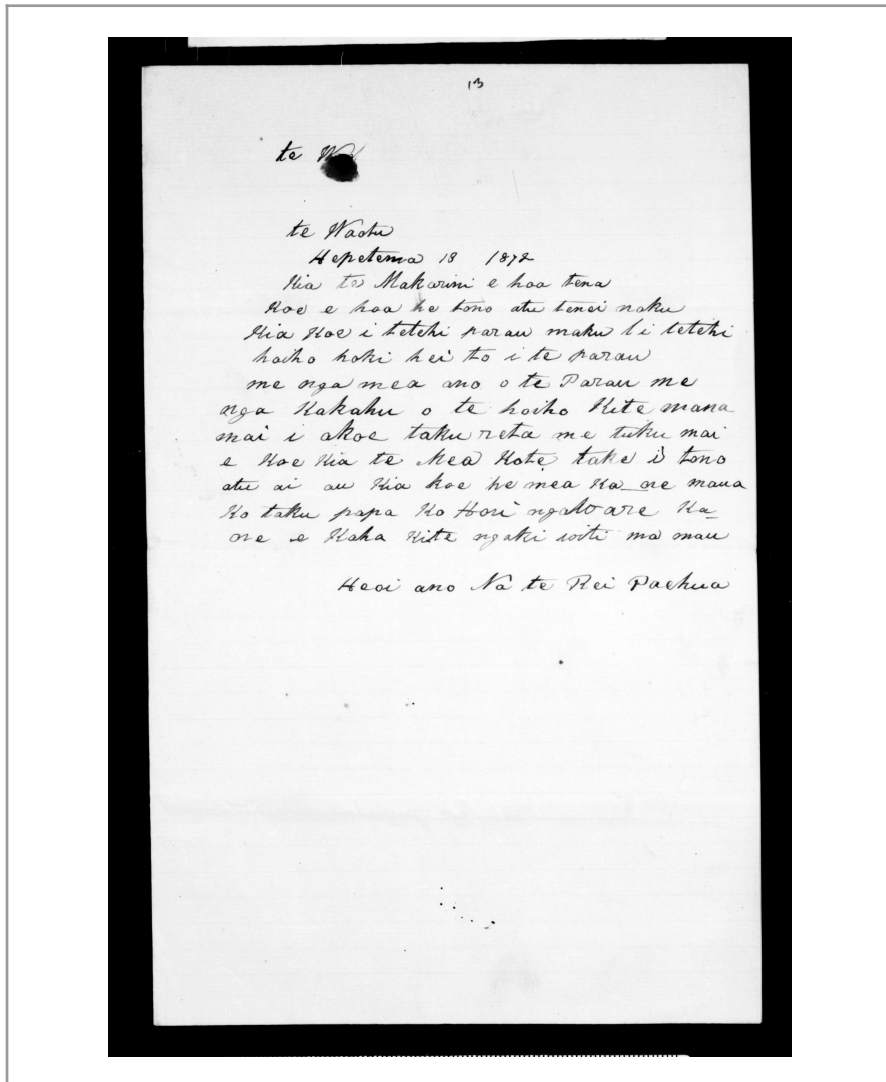 13
te
te Waotu
Hepetema 18 1872
Kia te Makarini e hoa tena
Koe e hoa he tono atu tenei naku
Kia Koe i tetehi parau maku i tetehi
hoiho hoki hei to i te parau
me nga mea ano o te Parau me
nga Kakahu o te hoiho Kite mana
mai i akoe taku reta me tuku mai
e Koe Kia te Mea Kote take i tono
atu ai au Kia koe he mea Ka_ore maua
Ko taku papa Ko Hori ngaware Ka_
ore e Kaha Kite ngaki witi ma mau
Heoi ano Na te Rei Paehua